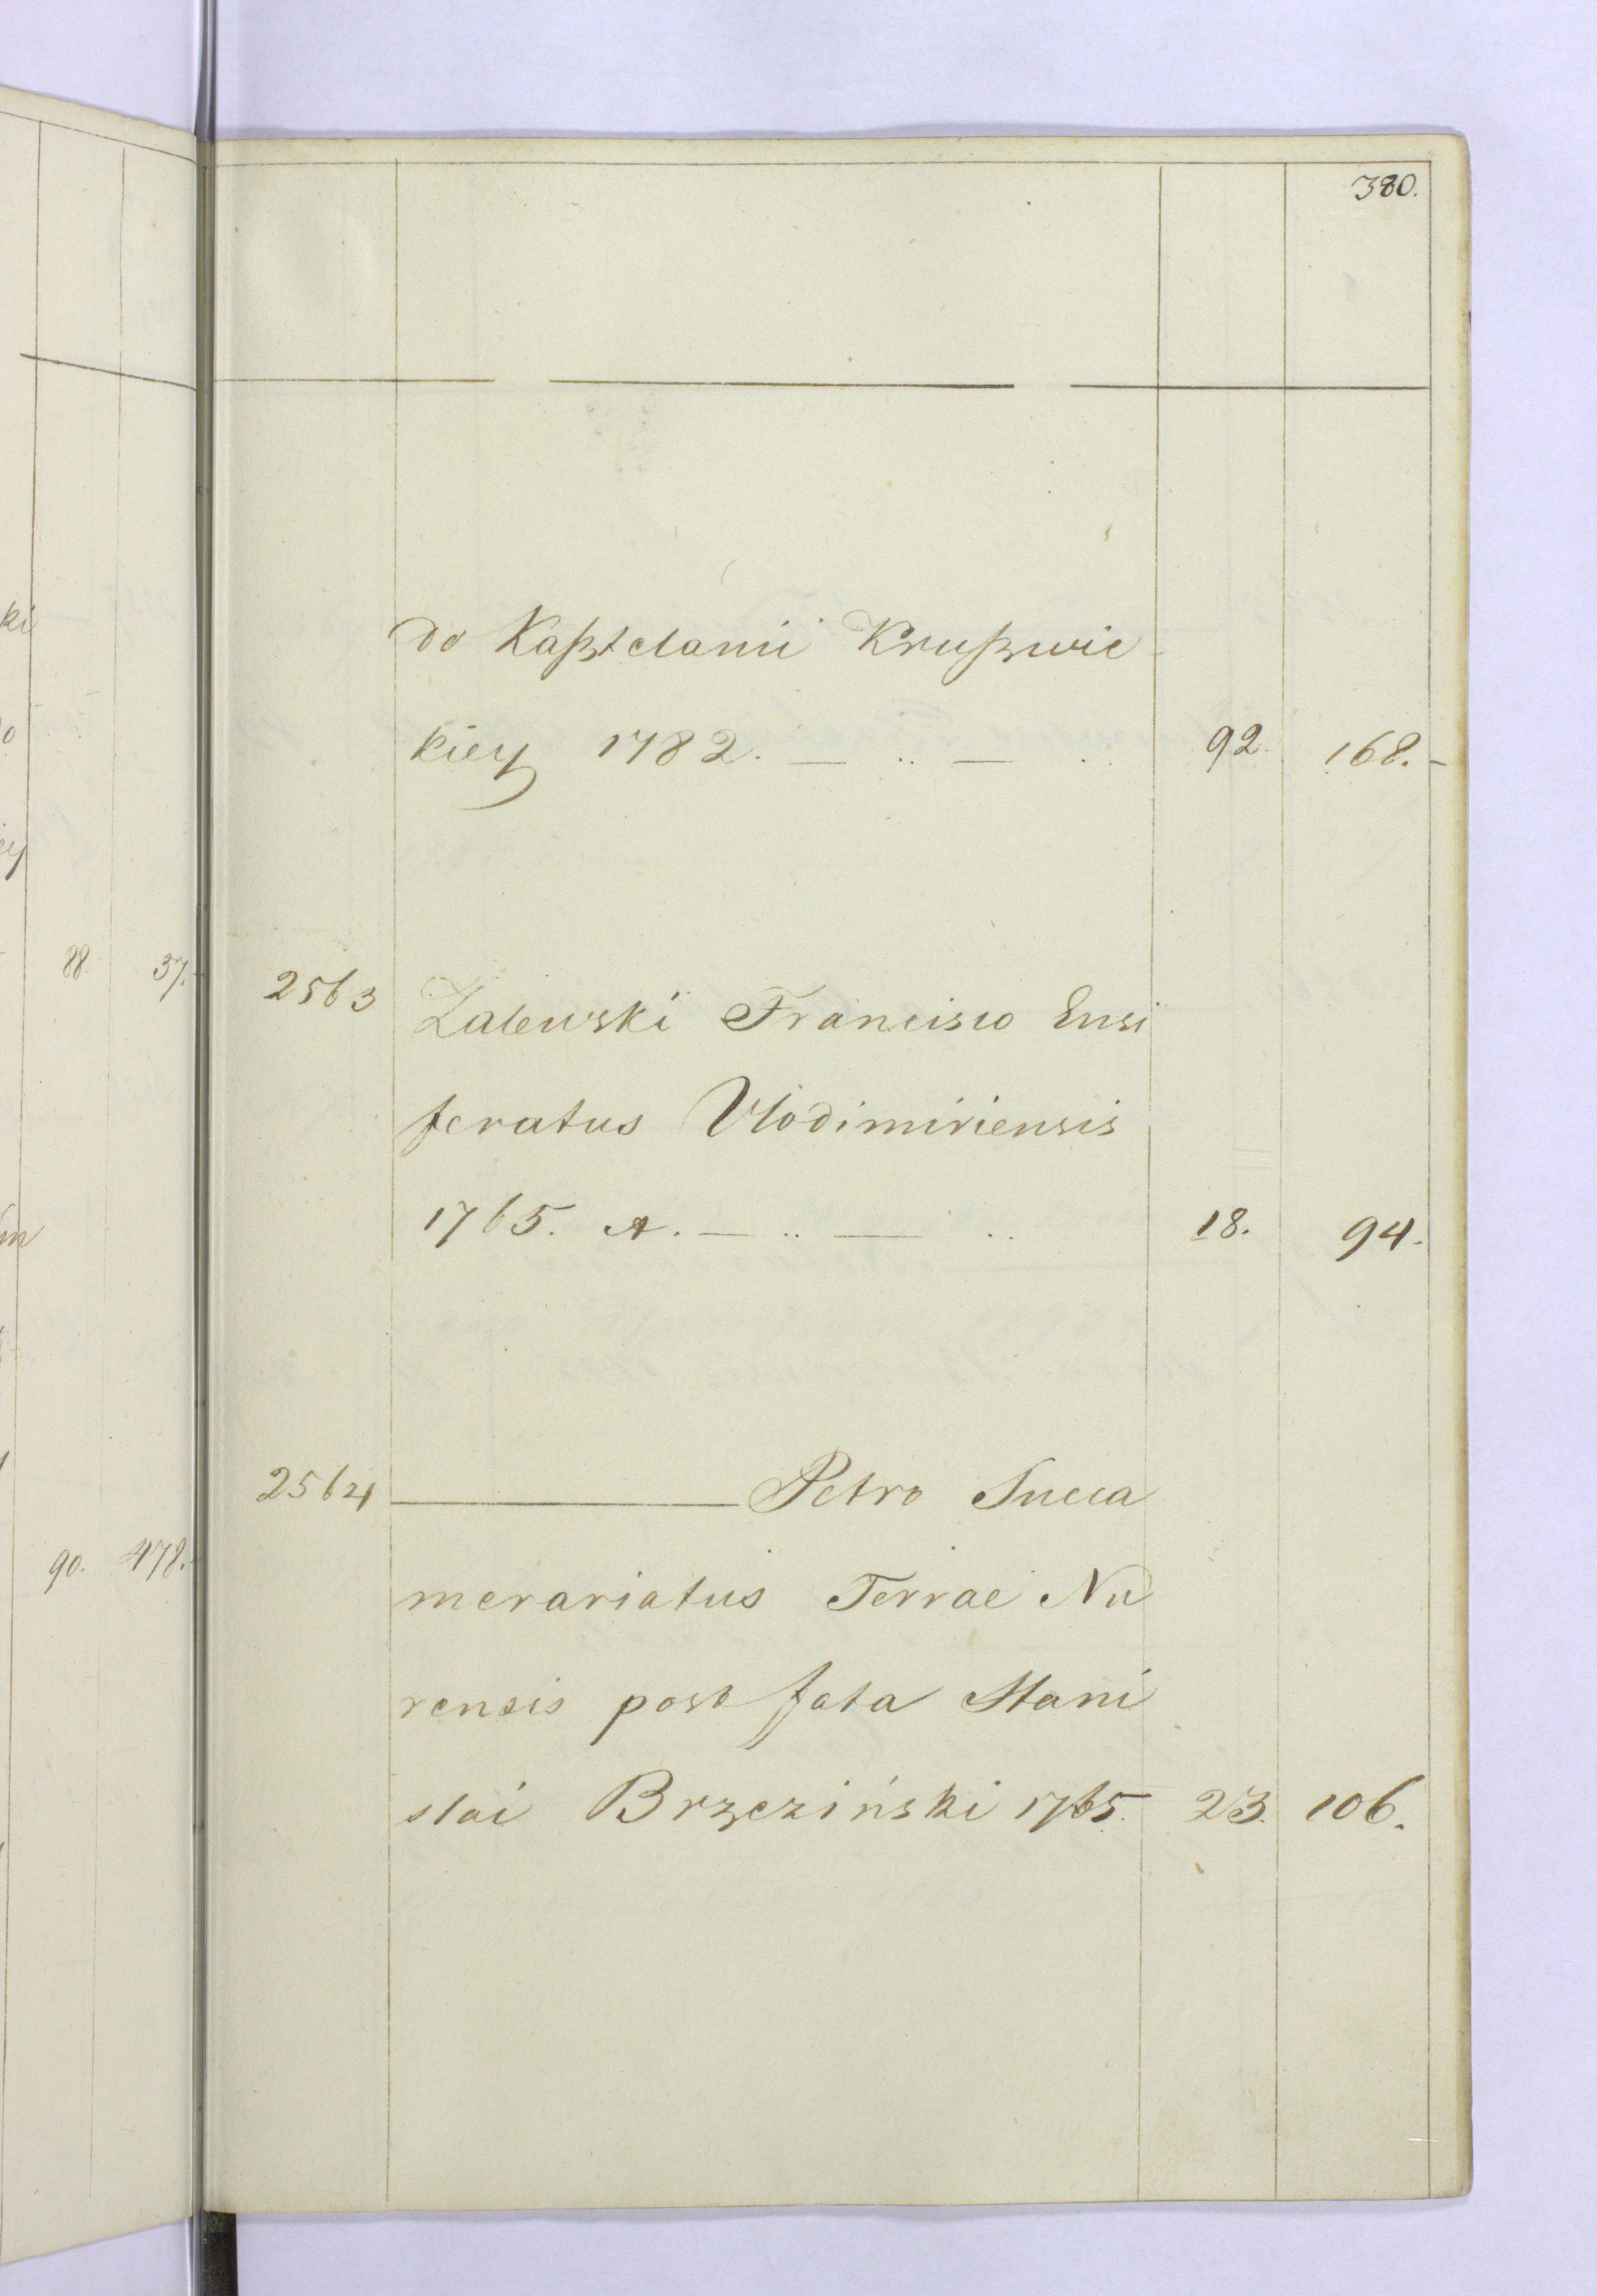 380.
do Kaßztelanii Krußzwic
kiey 1782. — .. — .. 92. 168.-
2563 Zalewski Francisco Ensi
feratus Vlodimiriensis
1765. A. — .. — .. 18. 94.
2564 ——— Petro Succa
merariatus Terrae Nu
rensis post fata Stani
slai Brzeziński 1765. 23. 106.
ki
88. 37.
90. 478.